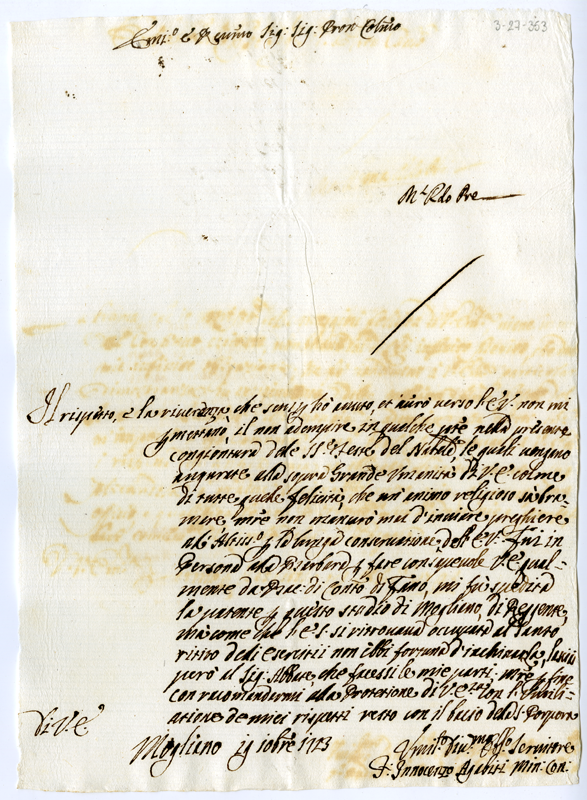 3-27-363
Em.o e R Sig: Sig: Pron Colmo
M.t Rdo Pre
Il rispetto, e la riverenza, che sempre hò avuto, et avrò verso l'E.V. non mi
permettano, il non adempire in qualche parte nella presente
congiontura delle SS.e Feste del Natale, le quali vengano
augurate alla sopra Grande Umanità Di V.E. colme
di tutte quelle felicità, che un' animo religioso sà bra-
mare, mentre non mancarò mai d'inviare preghiere
all' Altiss.o p la longa conservatione dell' E.V. Fui in
Persona alla p fare consapevole V.E. qual-
mente da di Fano, mi fù spedita
la patente p questo studio di Mogliano, di Regente,
mà come che l'E.S. si ritrovava occupata al Santo
ritiro degli esercitii non ebbi fortuna d'inchinarla, lasciai
però al Sig. Abbate, che facessi le mie parti
con racomandarmi alla Protetione di V.E.
atione de miei rispetti resto con il bacio della S. Porpora
Di V.E.
Mogliano 19 Xbre 1723
Umil.o Servitore
F. Innocenzo Agabiti Min: Con: